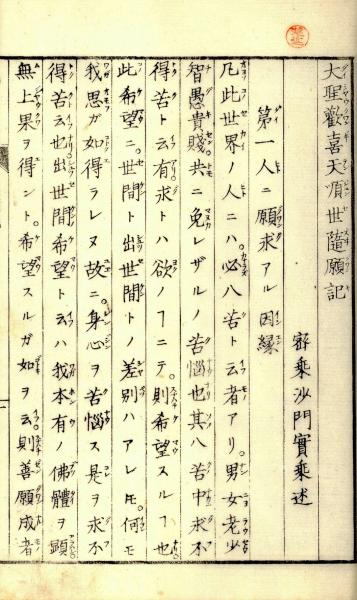 大聖歡喜天順世隨願記
密乘沙門實乘述
第一人ニ願求アル因縁
凡此世界ノ人ニハ必八苦ト云者アリ。男女老少
智愚貴賤共ニ免レザルノ苦惱也其八苦中求不
得苦ト云有求トハ欲ノヿニテ。則希望スルヿ也
此希望ニ。世間ト出世間トノ差別ハアレ𪜈。何モ
我思ガ如得ラレヌ故ニ。身心ヲ苦惱ス是ヲ求不
得苦ト云也出世間希望ト云ハ我本有ノ佛體ヲ顯
無上果ヲ得ント。希望スルガ如ヲ云。則善願成者